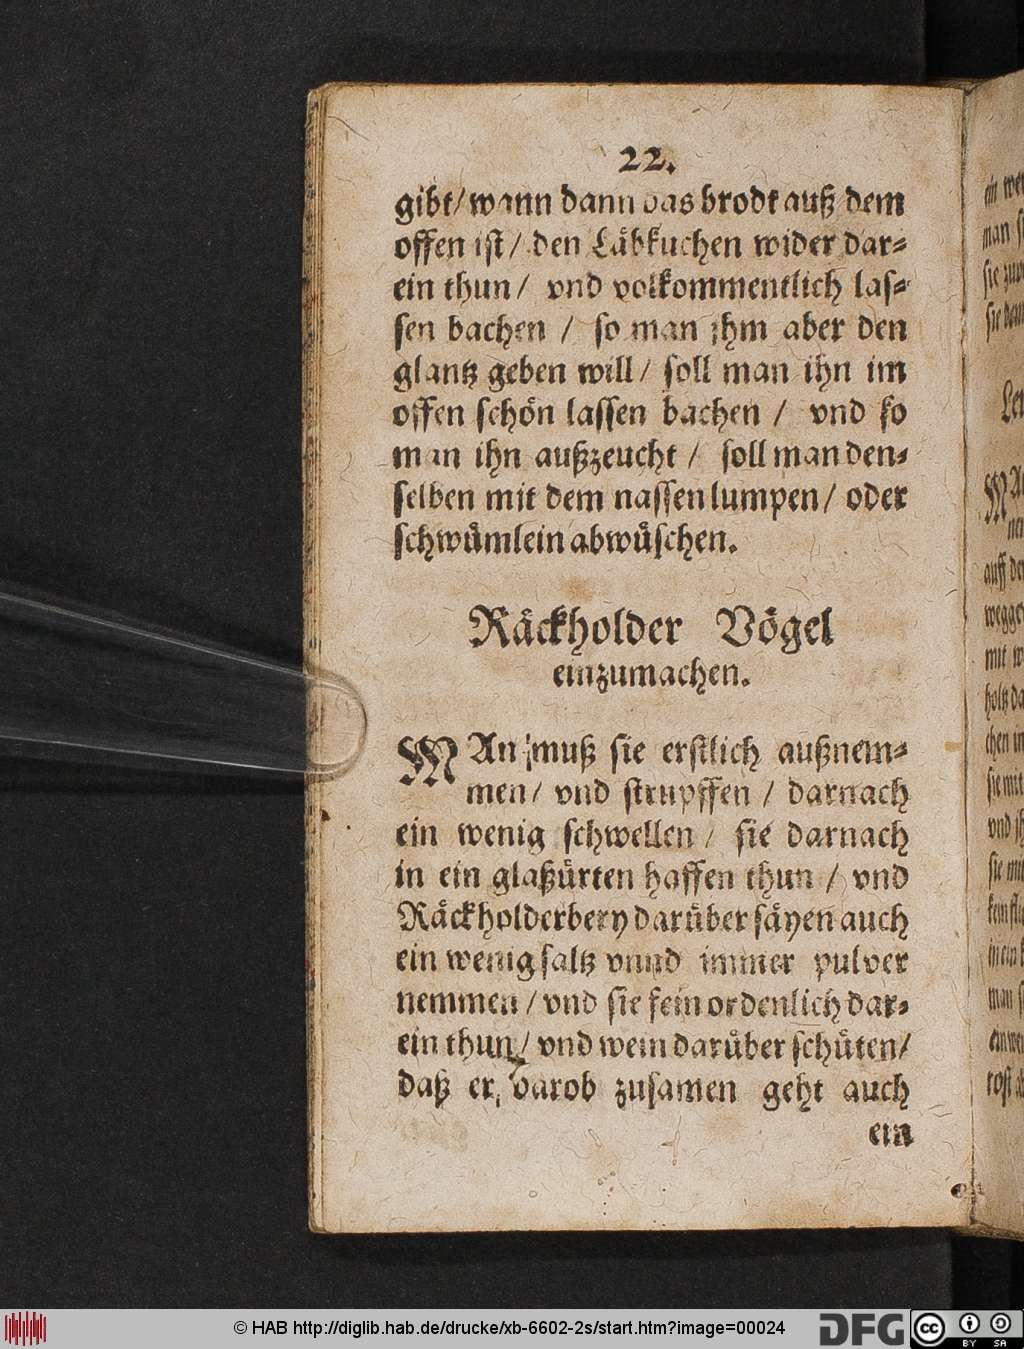 22.
gibt/ wann dann das brodt auß dem
offen ist/ den Läbkuchen wider dar-
ein thun/ vnd volkommentlich las-
sen bachen / so man jhm aber den
glantz geben will/ soll man ihn im
offen schön lassen bachen / vnd so
man ihn außzeucht / soll man den-
selben mit dem nassen lumpen/ oder
schwümlein abwüschen.
Räckholder Vögel
einzumachen.
MAn muß sie erstlich außnem-
men/ vnd strupffen / darnach
ein wenig schwellen / sie darnach
in ein glaßürten haffen thun / vnd
Räckholderbery darüber säyen auch
ein wenig saltz vnnd immer pulver
nemmen / vnd sie fein ordenlich dar-
ein thun / vnd wein darüber schüten/
daß er darob zusamen geht auch
ein
© HAB http://diglib.hab.de/drucke/xb-6602-2s/start.htm?image=00024
DFG
cc
BY SA